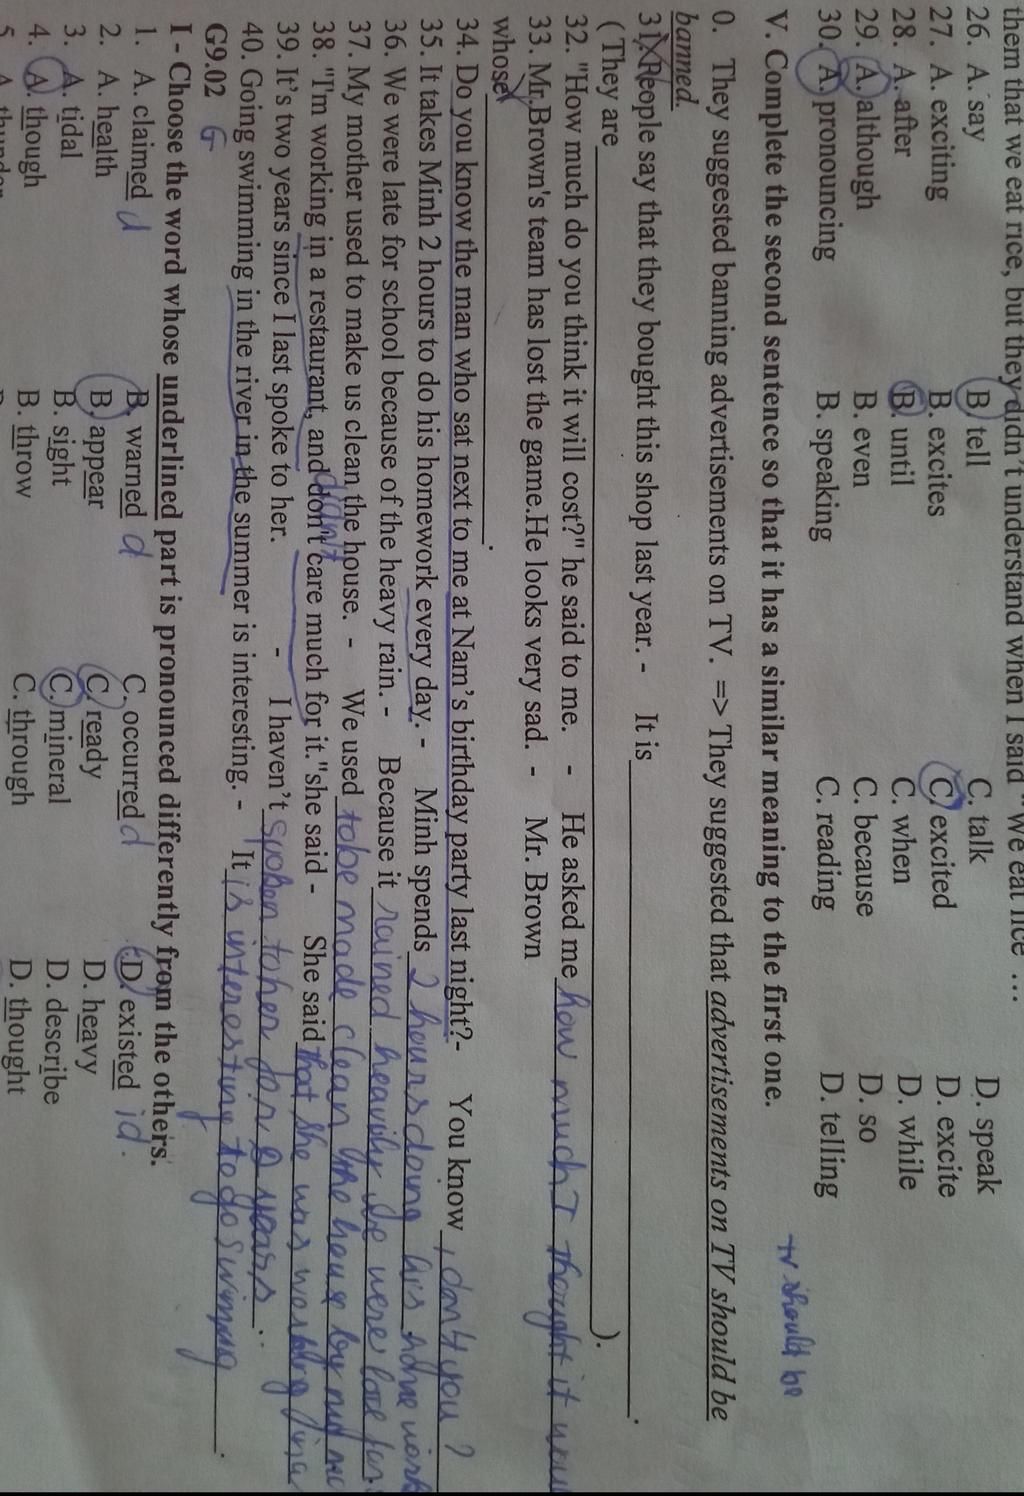 them that we eat rice, but they didn't understand when I said "We eat lice ...
26. A. say B. tell C. talk D. speak
27. A. exciting B. excites C. excited D. excite
28. A. after B. until C. when D. while
29. A. although B. even C. because D. so
30. A. pronouncing B. speaking C. reading D. telling
tv should be
V. Complete the second sentence so that it has a similar meaning to the first one.
0. They suggested banning advertisements on TV. => They suggested that advertisements on TV should be
banned.
31. People say that they bought this shop last year. - It is
( They are ).
32. "How much do you think it will cost?" he said to me. - He asked me how much I thought it
33. Mr.Brown's team has lost the game.He looks very sad. - Mr. Brown
whose .
34. Do you know the man who sat next to me at Nam's birthday party last night?- You know , don't you ?
35. It takes Minh 2 hours to do his homework every day. - Minh spends 2 hours doing his home work
36. We were late for school because of the heavy rain. - Because it rained heavily we were late for
37. My mother used to make us clean the house. - We used to be made clean the house by my
38. "I'm working in a restaurant, and don't care much for it."she said - She said that she was working in a
didn't
39. It's two years since I last spoke to her. - I haven't spoken to her for 2 years .
40. Going swimming in the river in the summer is interesting. - It is interesting to go swimming .
G9.02 G
I - Choose the word whose underlined part is pronounced differently from the others.
1. A. claimed d B. warned d C. occurred d D. existed id.
2. A. health B. appear C. ready D. heavy
3. A. tidal B. sight C. mineral D. describe
4. A. though B. throw C. through D. thought
5.